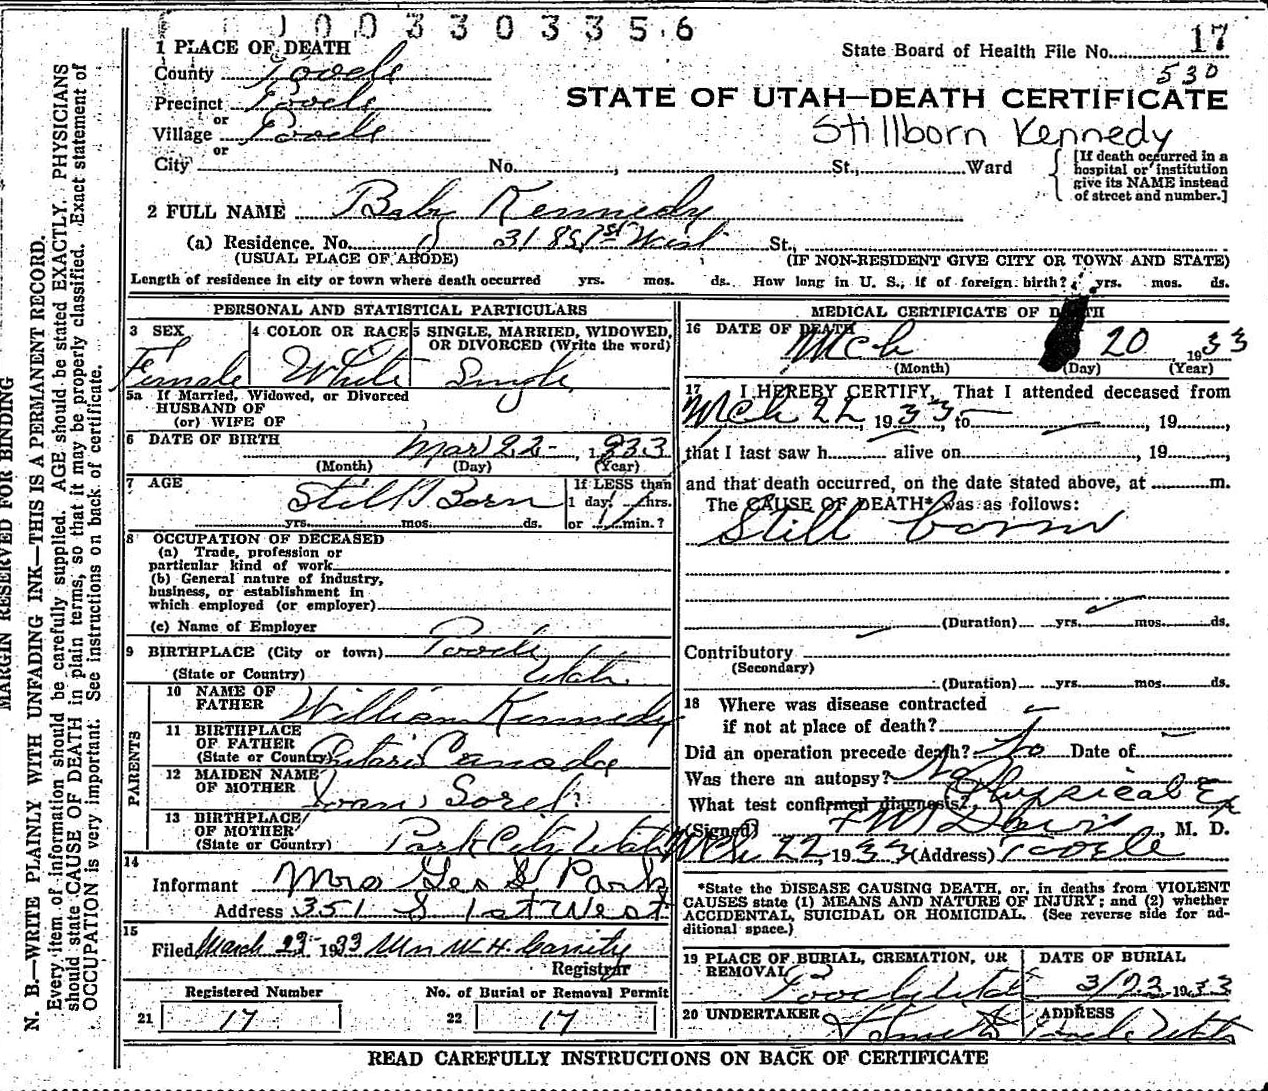 00330335.6
1 PLACE OF DEATH
State Board of Health File No. 17
County Tooele
530
Precinct Tooele
STATE OF UTAH—DEATH CERTIFICATE
or
Village Tooele
Stillborn Kennedy
or
City No. , St., Ward
[If death occurred in a hospital or institution give its NAME instead of street and number.]
2 FULL NAME Baby Kennedy
(a) Residence. No. 318 1st West St.,
(USUAL PLACE OF ABODE) (IF NON-RESIDENT GIVE CITY OR TOWN AND STATE)
Length of residence in city or town where death occurred yrs. mos. ds. How long in U. S., if of foreign birth? yrs. mos. ds.
PERSONAL AND STATISTICAL PARTICULARS
3 SEX 4 COLOR OR RACE 5 SINGLE, MARRIED, WIDOWED, OR DIVORCED (Write the word)
Female White Single
5a If Married, Widowed, or Divorced
HUSBAND OF
(or) WIFE OF
6 DATE OF BIRTH Mar 22 - , 1933
(Month) (Day) (Year)
7 AGE Still Born
If LESS than
1 day, hrs.
yrs. mos. ds. or min.?
8 OCCUPATION OF DECEASED
(a) Trade, profession or
particular kind of work
(b) General nature of industry,
business, or establishment in
which employed (or employer)
(c) Name of Employer
9 BIRTHPLACE (City or town) Tooele
(State or Country) Utah
PARENTS
10 NAME OF FATHER William Kennedy
11 BIRTHPLACE OF FATHER (State or Country) Ontario Canada
12 MAIDEN NAME OF MOTHER
13 BIRTHPLACE OF MOTHER (State or Country) Park City Utah
14
Informant Mrs Geo S Park
Address 351 S 1st West
15
Filed March 23- 1933 W. H. Registrar
Registered Number No. of Burial or Removal Permit
21 17 22 17
MEDICAL CERTIFICATE OF DEATH
16 DATE OF DEATH
Mch 20 1933
(Month) (Day) (Year)
17 I HEREBY CERTIFY, That I attended deceased from
Mch 22, 1933, to , 19 ,
that I last saw h alive on , 19 ,
and that death occurred, on the date stated above, at m.
The CAUSE OF DEATH* was as follows:
Still born
(Duration) yrs. mos. ds.
Contributory
(Secondary)
(Duration) yrs. mos. ds.
18 Where was disease contracted
if not at place of death?
Did an operation precede death? No Date of
Was there an autopsy? No
What test confirmed diagnosis? Physical Ex
(Signed) Davis, M. D.
Mch 22, 1933 (Address) Tooele
*State the DISEASE CAUSING DEATH, or, in deaths from VIOLENT
CAUSES state (1) MEANS AND NATURE OF INJURY; and (2) whether
ACCIDENTAL, SUICIDAL OR HOMICIDAL. (See reverse side for ad-
ditional space.)
19 PLACE OF BURIAL, CREMATION, OR REMOVAL DATE OF BURIAL
Tooele Utah 3/22 1933
20 UNDERTAKER ADDRESS
Tooele Utah
READ CAREFULLY INSTRUCTIONS ON BACK OF CERTIFICATE
MARGIN RESERVED FOR BINDING
N. B.—WRITE PLAINLY WITH UNFADING INK—THIS IS A PERMANENT RECORD.
Every item of information should be carefully supplied. AGE should be stated EXACTLY. PHYSICIANS
should state CAUSE OF DEATH in plain terms, so that it may be properly classified. Exact statement of
OCCUPATION is very important. See instructions on back of certificate.